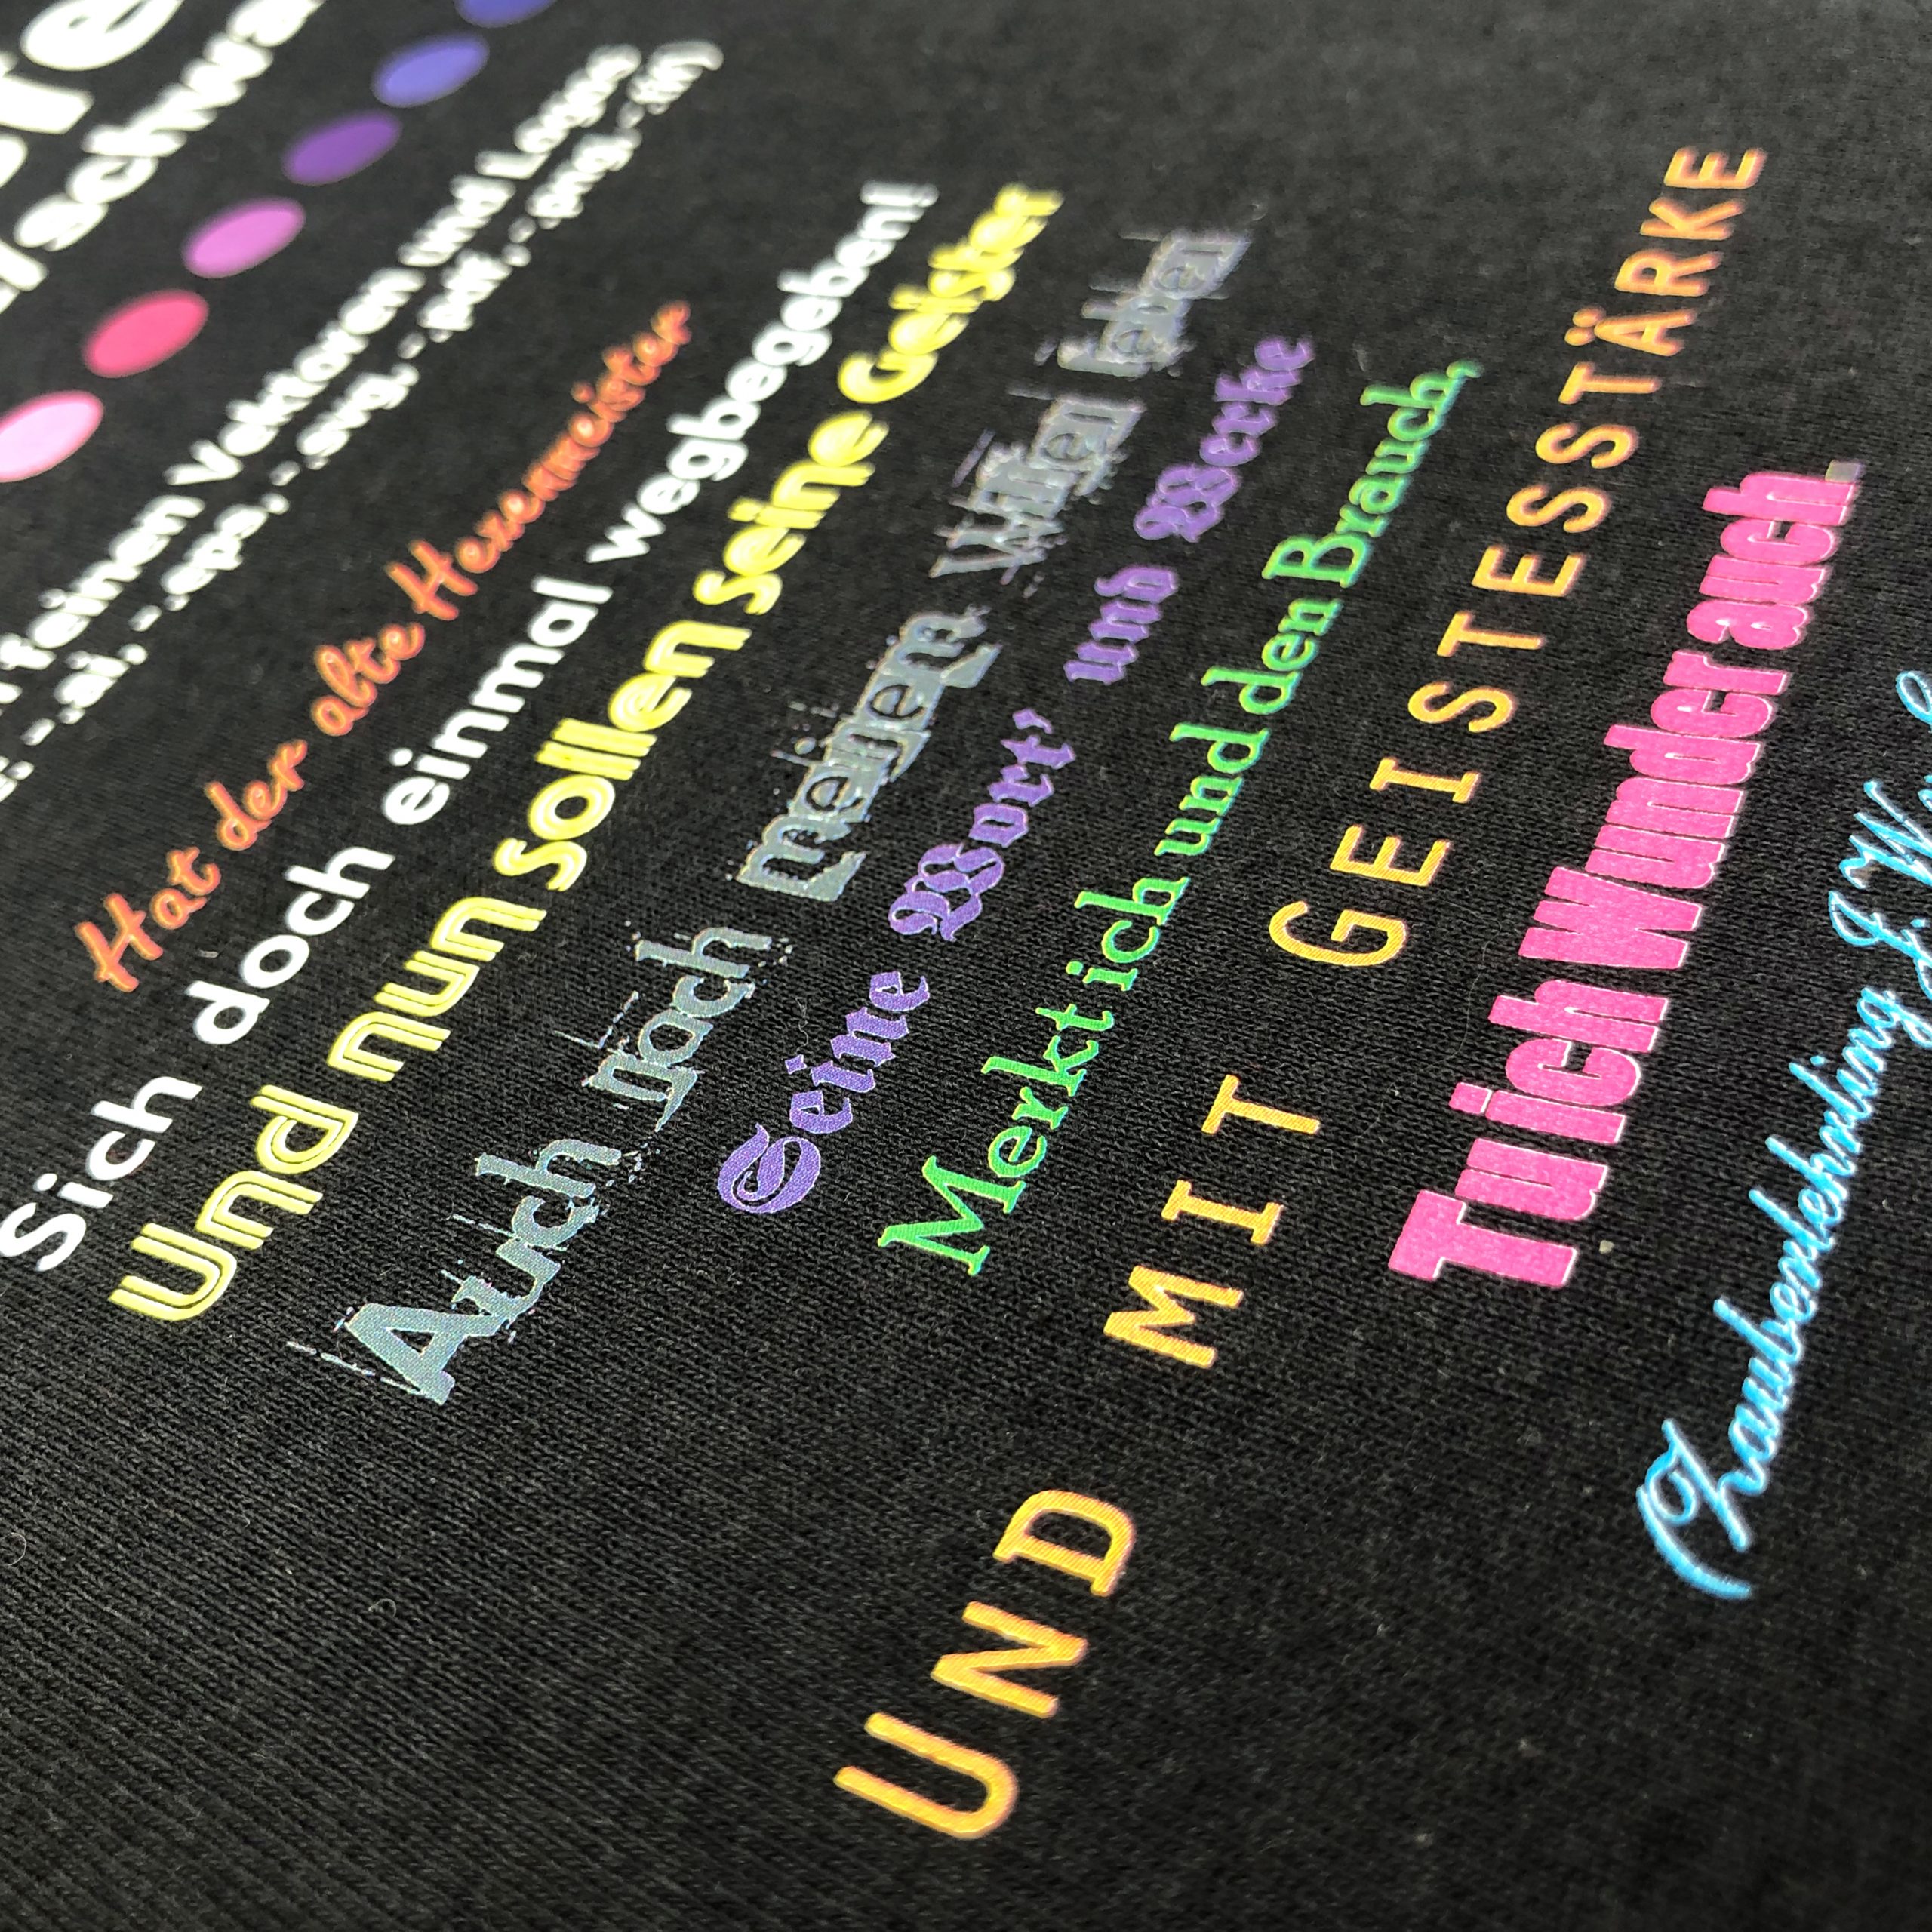 feinen Vektoren und Logos
-.ai, -.eps, -.svg, -.pdf, -.png, -.tif)
Hat der alte Hexenmeister
Sich doch einmal wegbegeben!
Und nun sollen seine Geister
Auch nach meinem Willen leben
Seine Wort' und Werke
Merkt ich und den Brauch,
UND MIT GEISTESSTÄRKE
Tu ich Wunder auch.
(Zauberlehrling J.W.